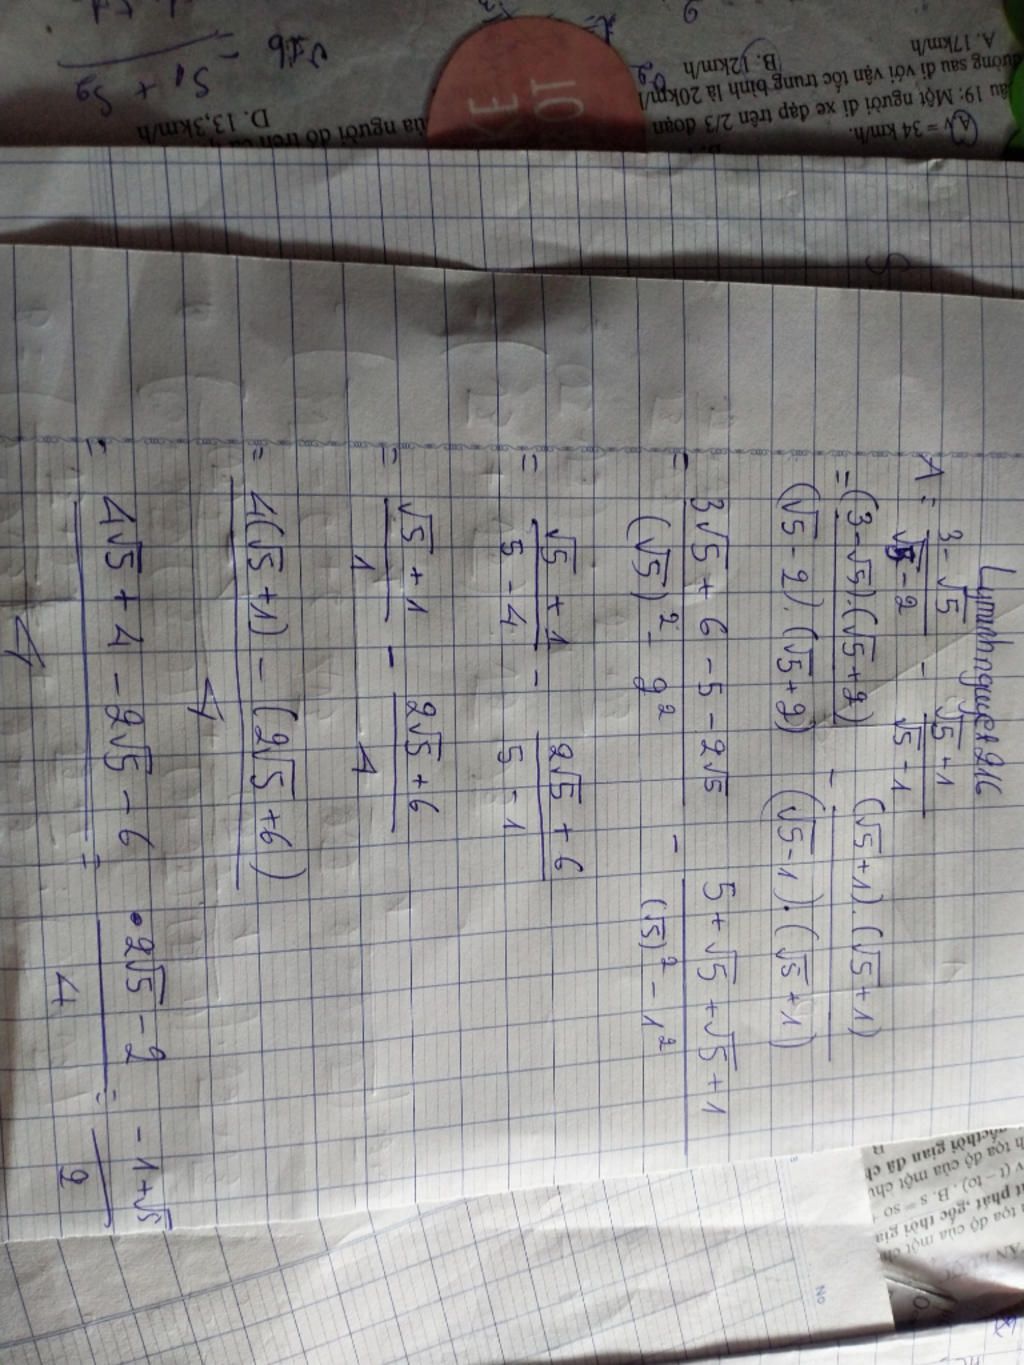 Lyminhnguyet216
A = \frac{3-\sqrt{5}}{\sqrt{5}-2} - \frac{\sqrt{5}+1}{\sqrt{5}-1}
= \frac{(3-\sqrt{5}).(\sqrt{5}+2)}{(\sqrt{5}-2).(\sqrt{5}+2)} - \frac{(\sqrt{5}+1).(\sqrt{5}+1)}{(\sqrt{5}-1).(\sqrt{5}+1)}
= \frac{3\sqrt{5}+6-5-2\sqrt{5}}{(\sqrt{5})^2-2^2} - \frac{5+\sqrt{5}+\sqrt{5}+1}{(\sqrt{5})^2-1^2}
= \frac{\sqrt{5}+1}{5-4} - \frac{2\sqrt{5}+6}{5-1}
= \frac{\sqrt{5}+1}{1} - \frac{2\sqrt{5}+6}{4}
= \frac{4(\sqrt{5}+1)-(2\sqrt{5}+6)}{4}
= \frac{4\sqrt{5}+4-2\sqrt{5}-6}{4} = \frac{2\sqrt{5}-2}{4} = \frac{-1+\sqrt{5}}{2}
A. v = 34 km/h.
âu 19: Một người đi xe đạp trên 2/3 đoạn
đường sau đi với vận tốc trung bình là 20km/h
A. 17km/h
B. 12km/h
D. 13,3km/h
ủa người đó trên cả
S1 + S2
vtb =